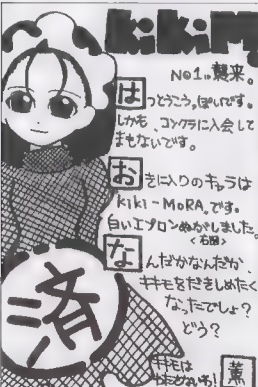 KiKiM
NO1。襲来。
はっとうこう。ぽいです。
しかも、コンクラに入会して
まもないです。
おきに入りのキャラは
KiKi-MORA。です。
白いエプロンぬがしました。
<右図>
なんだかなんだか、
キキモをだきしめたく
なったでしょ?
どう?
済
キキモは
薫